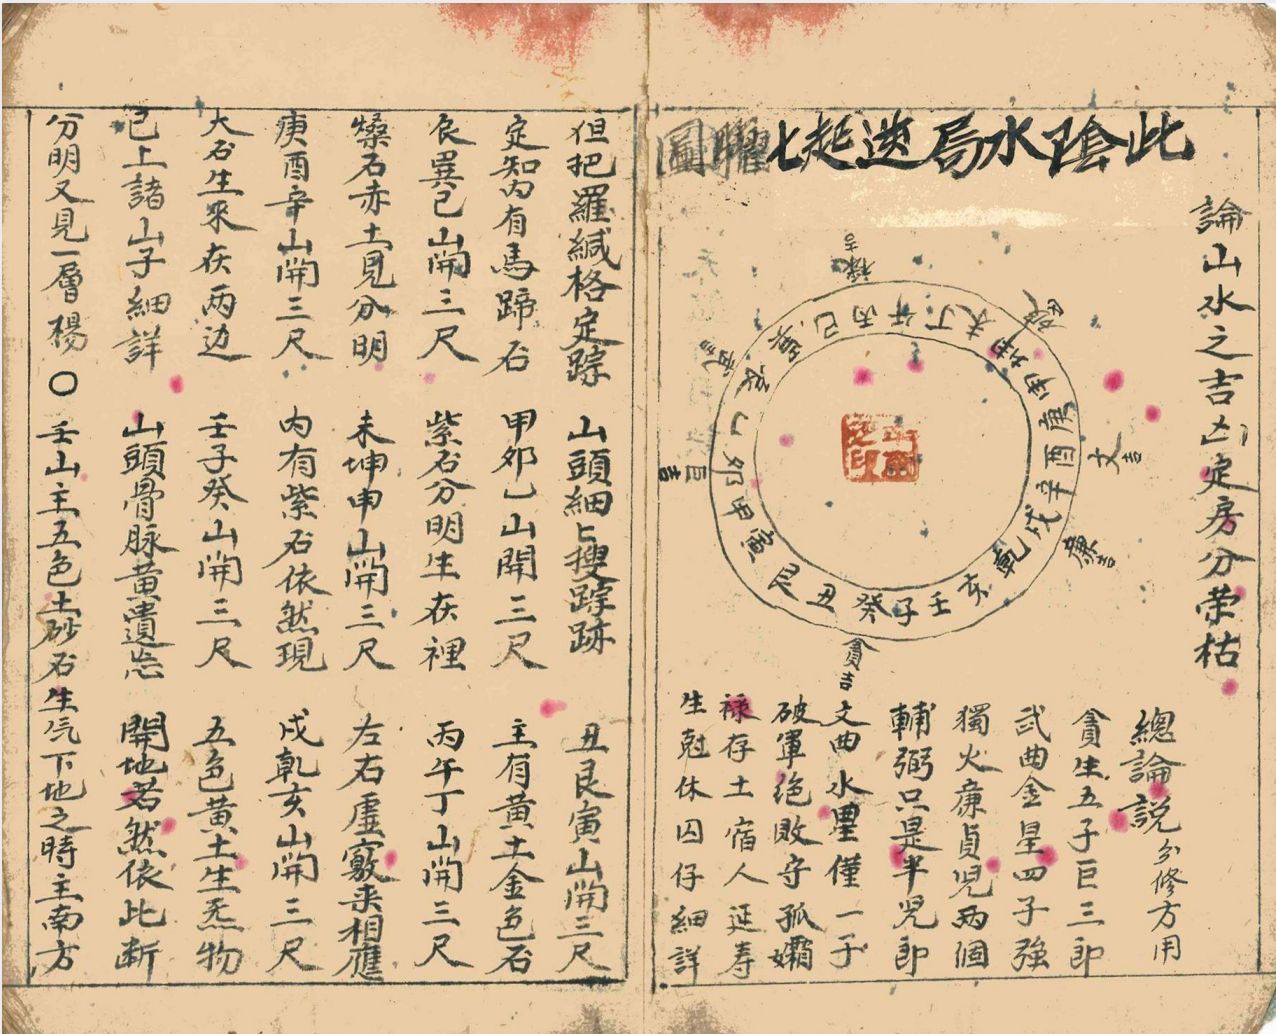 此陰水局逆起七曜圖
論山水之吉凶定房分荣枯
祿吉
破
文吉
廉吉
貪吉
巨吉
武吉
壬子癸丑艮寅甲卯乙辰巽巳丙午丁未坤申庚酉辛戌乾亥
總論說 分修方用
貪生五子巨三郎
武曲金星四子強
獨火廉貞児両個
輔弼只是半児郎
文曲水星僅一子
破軍絶敗守孤孀
祿存土宿人延寿
生尅休囚仔細詳
但把羅緘格定踪 山頭細匕搜踪跡 丑艮寅山開三尺
定知内有馬蹄石 甲卯乙山開三尺 主有黄土金色石
辰巽巳山開三尺 紫石分明生在裡 丙午丁山開三尺
燥石赤土見分明 未坤申山開三尺 左右虛竅来相應
庚酉辛山開三尺 内有紫石依然現 戌乾亥山開三尺
大石生來在两边 壬子癸山開三尺 五色黄土生炁物
已上諸山子細詳 山頭骨脉莫遺忘 開地若然依此断
分明又見一層楊 〇 壬山主五色土砂石生气下地之時主南方